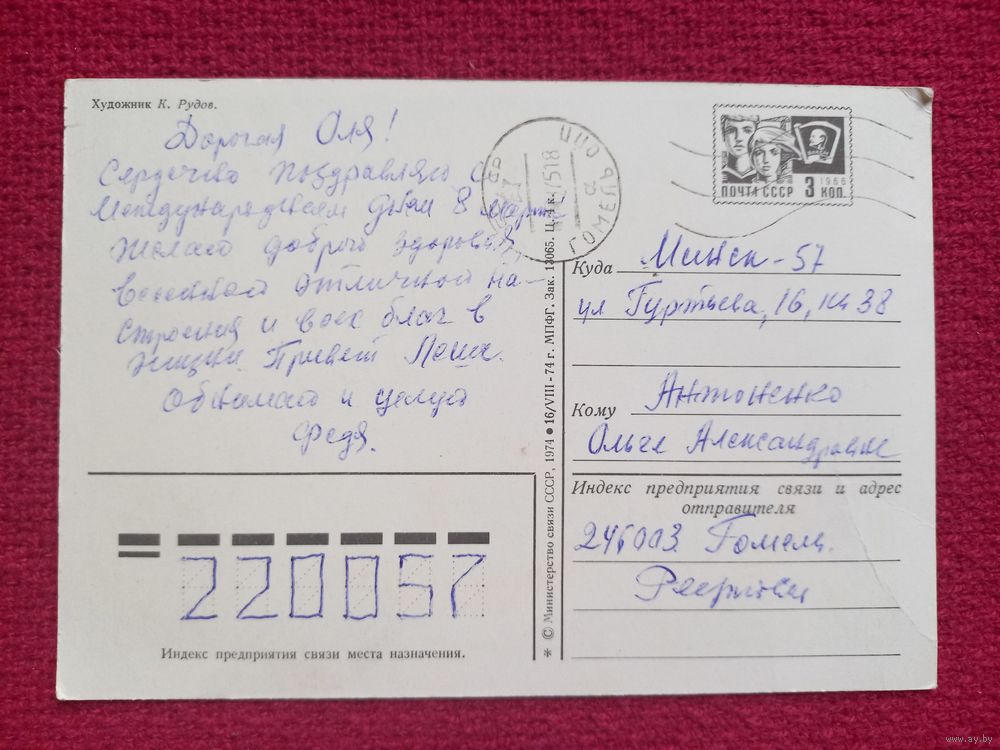 Художник К. Рудов.
Дорогая Оля!
Сердечно поздравляю с
Международным днём 8 марта
Желаю доброго здоровья,
весенней отличной на-
строения и всех благ в
жизни. Привет Лёше.
Обнимаю и целую
Федя.
220057
Индекс предприятия связи места назначения.
* © Министерство связи СССР, 1974 ● 16/VIII - 74 г. МПФГ. Зак. 13065. Ц. 4 к.
ГОМЕЛЬ
ПОЧТА СССР 3 КОП. 1966
Куда Минск-57
ул Гуртьева, 16, кв 38
Кому Антоненко
Ольге Александровне
Индекс предприятия связи и адрес
отправителя
246003 Гомель
www.ay.by